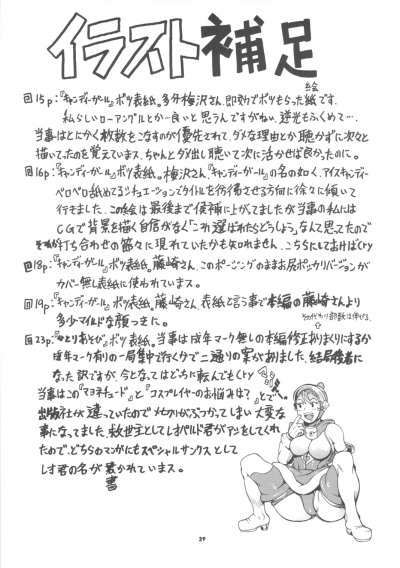 イラスト補足
回15p:『キャンディーガール』ボツ表紙。多分梅沢さん。即効でボツもらった絵です。
私らしいローアングルとか…良いと思うんですがねぃ、逆光もふくめて…。
当事はとにかく枚数をこなすのが優先されて、ダメな理由とか聴かずに次々と
描いてったのを覚えています。ちゃんとダメ出し聴いて次に活かせば良かったのに。
回16p:『キャンディーガール』ボツ表紙。梅沢さん。『キャンディーガール』の名の如く、アイスキャンディー
ペロペロ舐めてるシチュエーションでタイトルを彷彿させる方向に徐々に傾いて
行きました。この絵は最後まで候補に上がってましたが当事の私には
CGで背景を描く自信がなく「これ選ばれたらどうしよう」なんて思ってたので
それが打ち合わせの節々に現れていたかも知れません。こちらにしておけばcry
回18p:『キャンディーガール』ボツ表紙。藤崎さん。このポージングのままお尻ボッカリバージョンが
カバー無し表紙に使われています。
回19p:『キャンディーガール』ボツ表紙。藤崎さん。表紙と言う事で本編の藤崎さんより
多少マイルドな顔つきに。
回23p:『ひとりあそび』ボツ表紙。当事は成年マーク無しの本編修正ありまくりにするか
成年マーク有りの一局集中で行くかで二通りの案がありました。結局後者に
なった訳ですが、今となってはどっちに転んでもcry
当事はこの『マヨネチュード』と『コスプレイヤーのお悩みは?』とで
出版社が違っていたのでメとりがぶつかってしまい大変な
事になってました。救世主としてレオパルド君がアシをしてくれ
たので、どちらのマンガにもスペシャルサンクスとして
レオ君の名が書かれています。
29